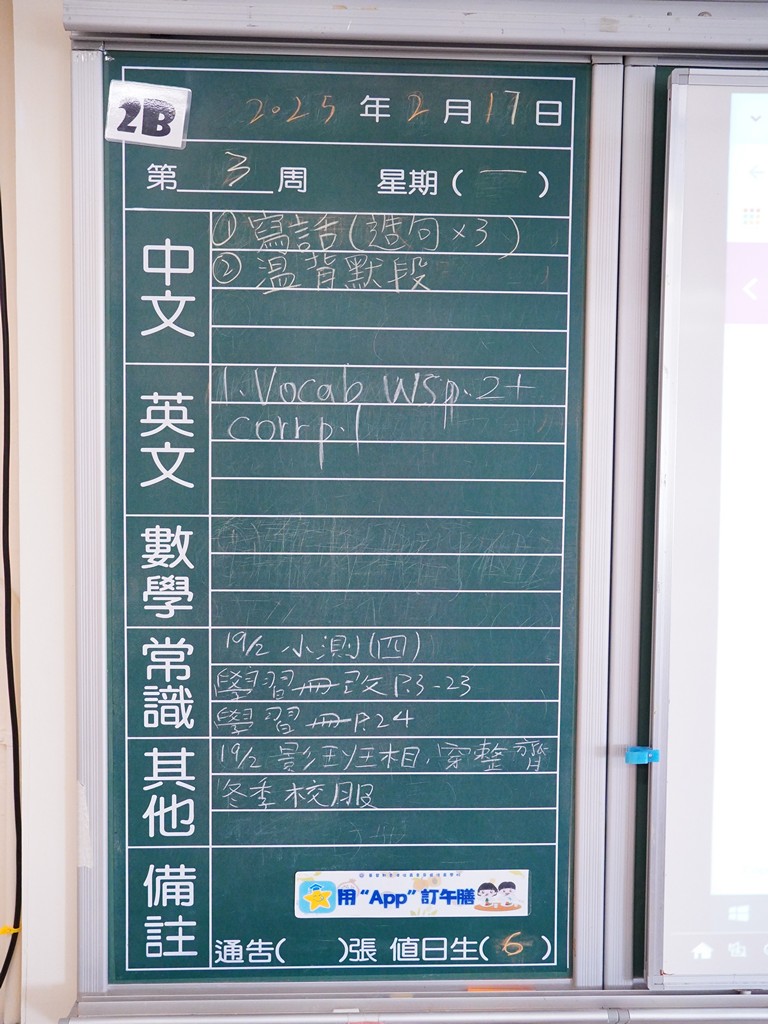 2B
2025年2月17日
第3周 星期(一)
中文
① 寫話(造句×3)
② 溫背默段
英文
1. Vocab wsp.2+
corrp.1
數學
常識
19/2 小測(四)
學習冊改P.3-23
學習冊P.24
其他
19/2 影班相,穿整齊
冬季校服
備註
用“App”訂午膳
通告( )張 值日生(6)